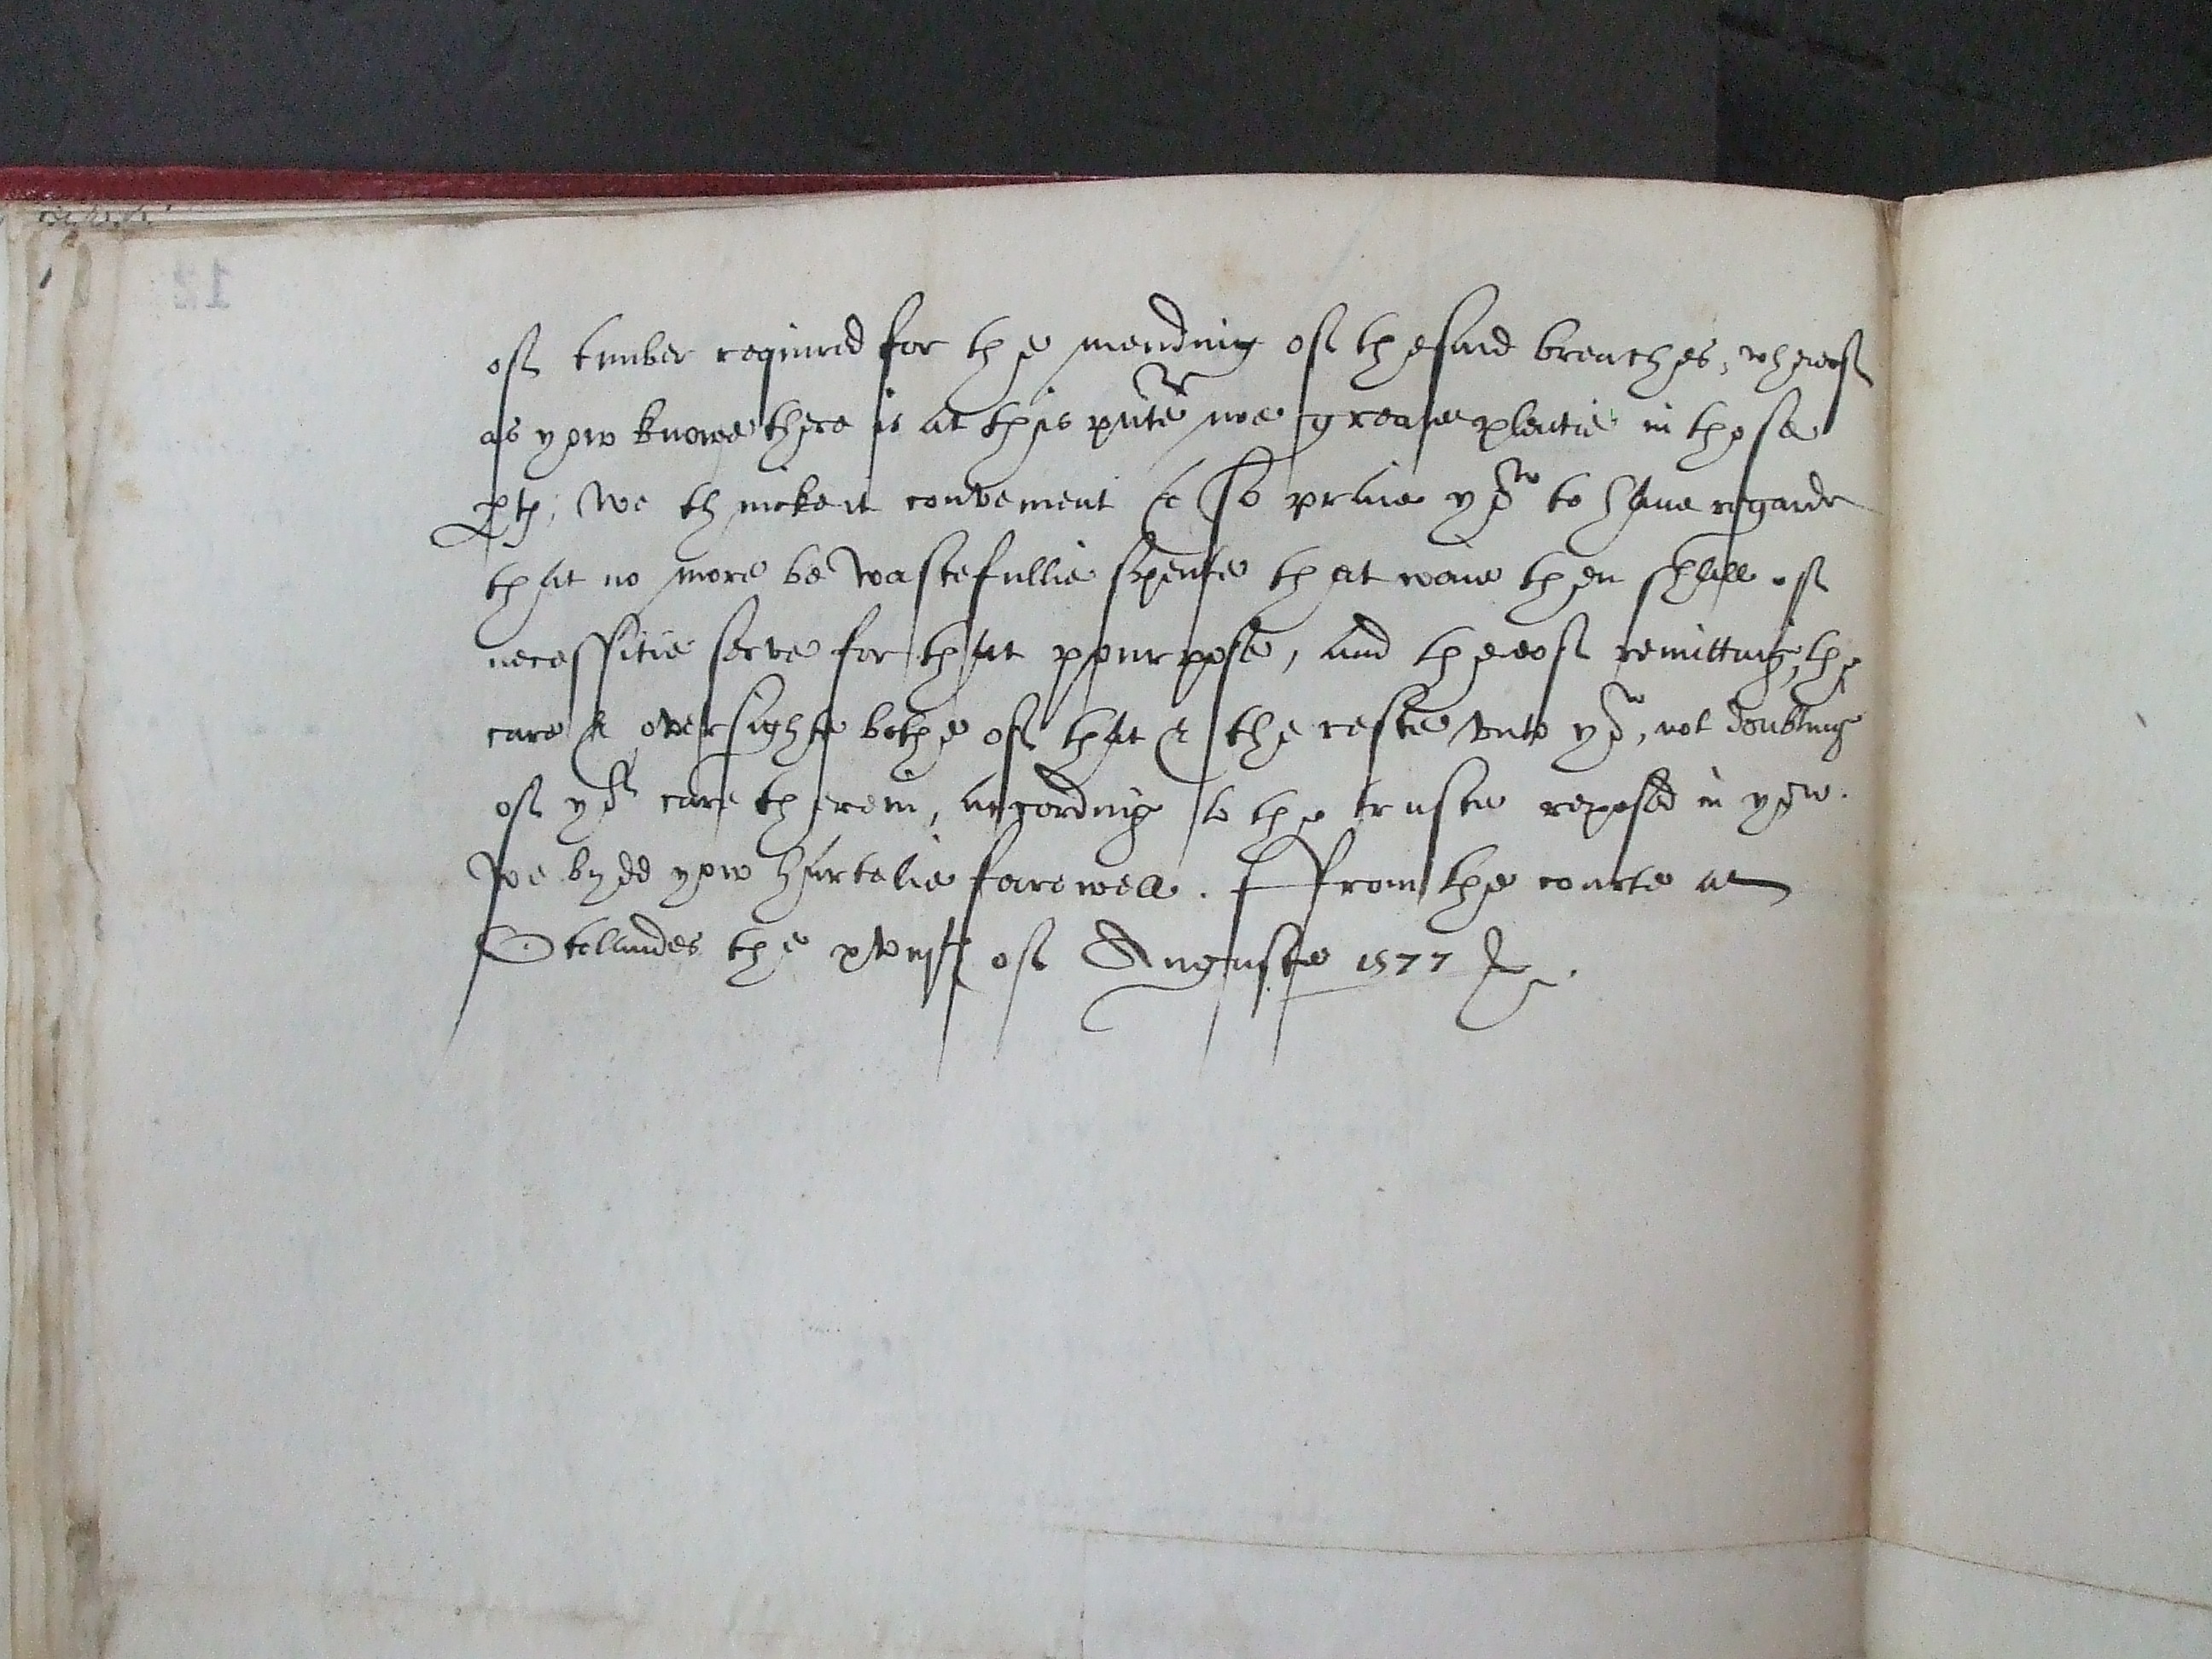 of timber required for the mending of thesaid breaches, whereof
as yow knowe there is at this pnte noe greate plentie in those
ptes, we thincke it convenient & so praie yow to have regarde
that no more be wastefullie spente that waie then shall of
necessitie serve for that pourpose, and thereof remitting the
care & oversighte bothe of that & the reste vnto yow, not doubting
of yor care therein, according to the truste reposed in yow.
we bydd yow hartelie farewell. ffrom the courte at
Otelandes the xviijth of Auguste 1577 &c.
12